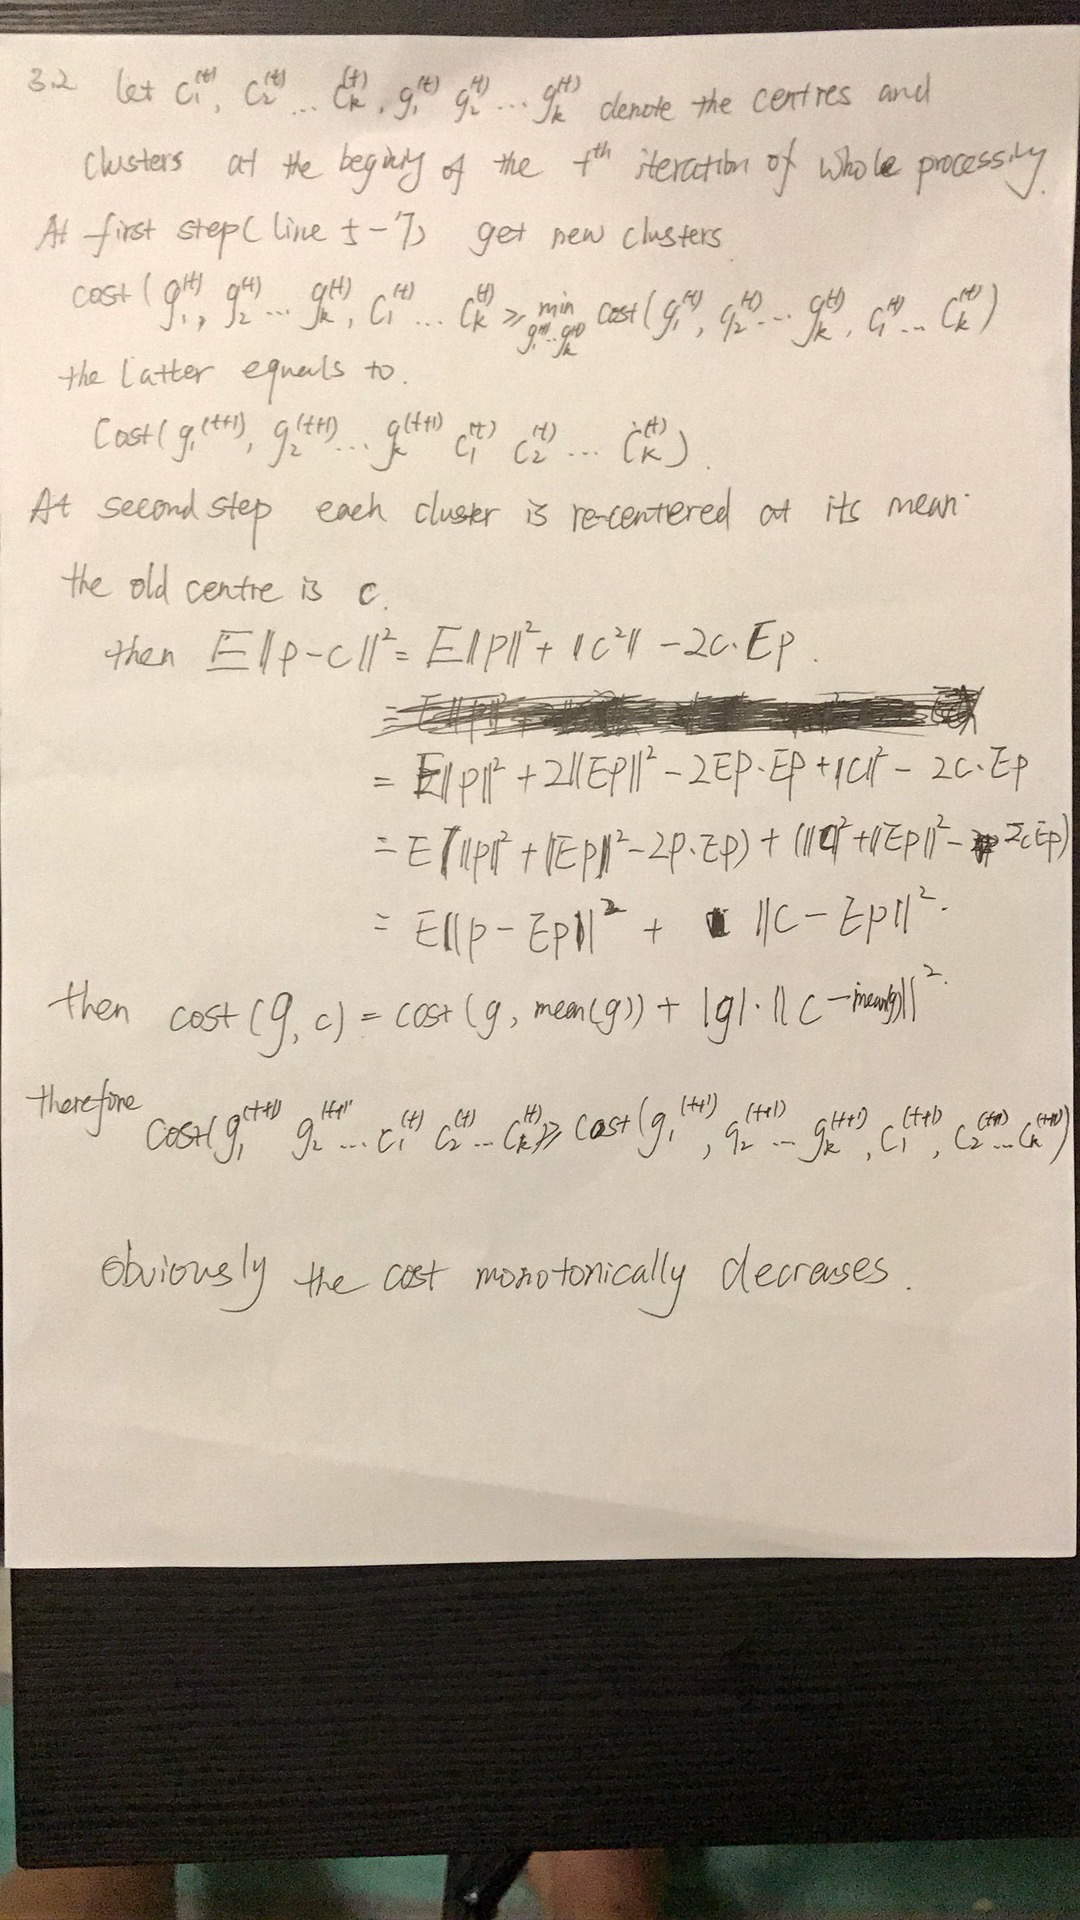 3.2 let C₁⁽ᵗ⁾, C₂⁽ᵗ⁾ ... Cₖ⁽ᵗ⁾, g₁⁽ᵗ⁾ g₂⁽ᵗ⁾ ... gₖ⁽ᵗ⁾ denote the centres and
clusters at the beginy of the tᵗʰ iteration of whole processiny.
At first step (line 5-7) get new clusters
cost(g₁⁽ᵗ⁾, g₂⁽ᵗ⁾ ... gₖ⁽ᵗ⁾, C₁⁽ᵗ⁾ ... Cₖ⁽ᵗ⁾) ≥ min_{g₁⁽ᵗ⁾...gₖ⁽ᵗ⁾} cost(g₁⁽ᵗ⁾, g₂⁽ᵗ⁾ ... gₖ⁽ᵗ⁾, C₁⁽ᵗ⁾ ... Cₖ⁽ᵗ⁾)
the latter equals to.
Cost(g₁⁽ᵗ⁺¹⁾, g₂⁽ᵗ⁺¹⁾ ... gₖ⁽ᵗ⁺¹⁾ C₁⁽ᵗ⁾ C₂⁽ᵗ⁾ ... Cₖ⁽ᵗ⁾).
At second step each cluster is re-centered at its mean.
the old centre is c.
then E||p-c||² = E||p||² + ||c²|| - 2c·Ep.
= E||p||² + 2||Ep||² - 2Ep·Ep + ||c||² - 2c·Ep
= E(||p||² + ||Ep||² - 2p·Ep) + (||c||² + ||Ep||² - 2cEp)
= E||p - Ep||² + ||c - Ep||².
then cost(g, c) = cost(g, mean(g)) + |g|·||c - mean(g)||².
therefore cost(g₁⁽ᵗ⁺¹⁾ g₂⁽ᵗ⁺¹⁾ ... C₁⁽ᵗ⁾ C₂⁽ᵗ⁾ ... Cₖ⁽ᵗ⁾) ≥ cost(g₁⁽ᵗ⁺¹⁾, g₂⁽ᵗ⁺¹⁾ ... gₖ⁽ᵗ⁺¹⁾, C₁⁽ᵗ⁺¹⁾, C₂⁽ᵗ⁺¹⁾ ... Cₖ⁽ᵗ⁺¹⁾)
Obviously the cost monotonically decreases.